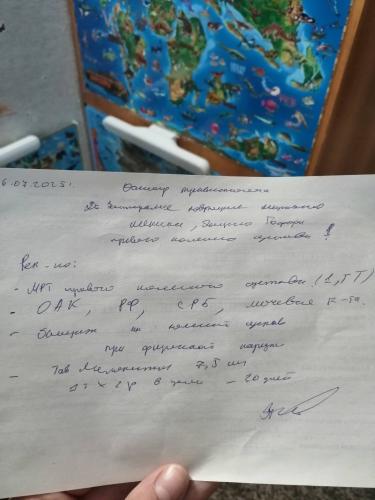 6.07.2025г.
Осмотр травматолога
Ds: Застарелое повреждение
мениска,
правого коленного сустава ?
Рек-но:
- МРТ правого коленного сустава (1,5 Т)
- ОАК, РФ, СРБ, мочевая к-та.
- бандаж на коленный сустав
при физической нагрузке
- Таб Мелоксикам 7,5 мг
1т х 2р в день - 20 дней